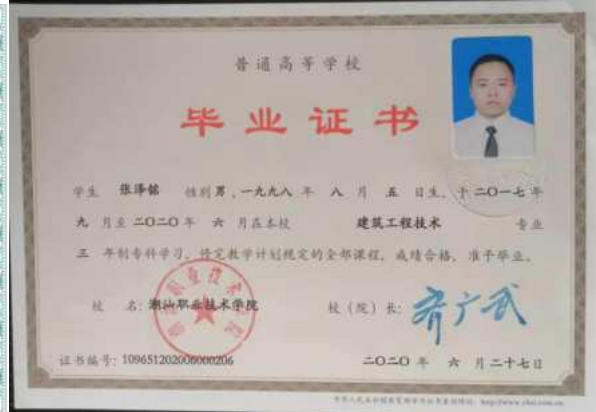 普通高等学校
毕业证书
学生 张泽铭 性别男,一九九八年 八 月 五 日生,于二〇一七年
九 月至二〇二〇年 六 月在本校 建筑工程技术 专业
三 年制专科学习,修完教学计划规定的全部课程,成绩合格,准予毕业。
校 名:潮汕职业技术学院 校(院)长:
证书编号:109651202006000206 二〇二〇年 六 月二十七日